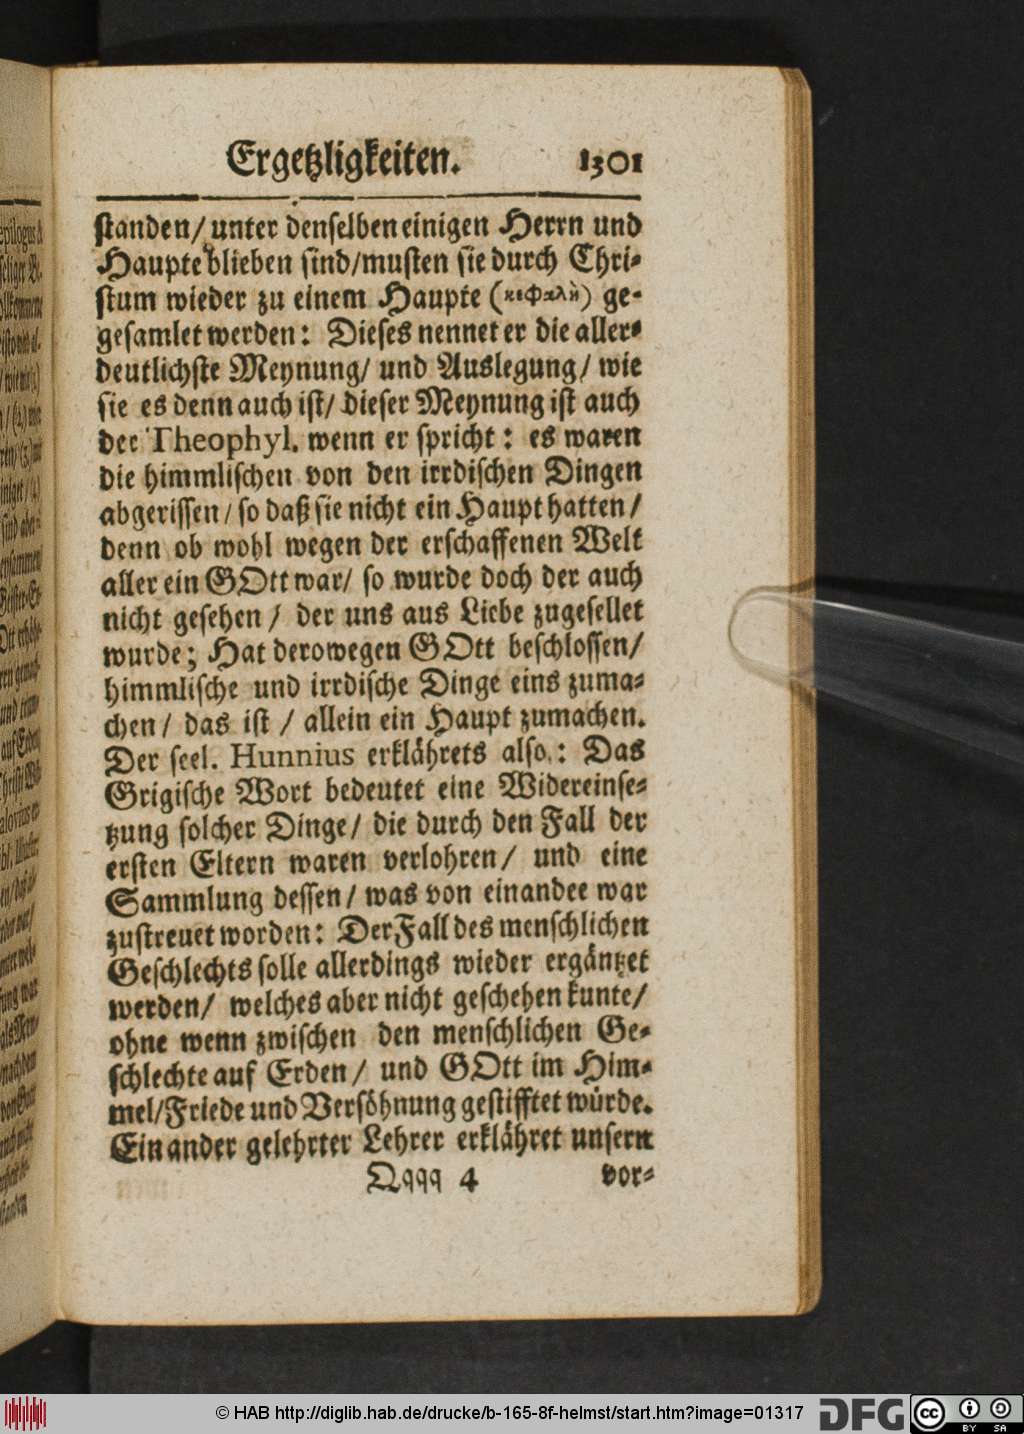 Ergetzligkeiten. 1301
standen/ unter denselben einigen Herrn und
Haupte blieben sind/musten sie durch Chri-
stum wieder zu einem Haupte (κεφαλὴ) ge-
gesamlet werden: Dieses nennet er die aller-
deutlichste Meynung/ und Auslegung/ wie
sie es denn auch ist/ dieser Meynung ist auch
der Theophyl. wenn er spricht: es waren
die himmlischen von den irrdischen Dingen
abgerissen/ so daß sie nicht ein Haupt hatten/
denn ob wohl wegen der erschaffenen Welt
aller ein GOtt war/ so wurde doch der auch
nicht gesehen/ der uns aus Liebe zugesellet
wurde; Hat derowegen GOtt beschlossen/
himmlische und irrdische Dinge eins zuma-
chen/ das ist / allein ein Haupt zumachen.
Der seel. Hunnius erklährets also.: Das
Grigische Wort bedeutet eine Widereinse-
tzung solcher Dinge/ die durch den Fall der
ersten Eltern waren verlohren/ und eine
Sammlung dessen/ was von einandee war
zustreuet worden: Der Fall des menschlichen
Geschlechts solle allerdings wieder ergäntzet
werden/ welches aber nicht geschehen kunte/
ohne wenn zwischen den menschlichen Ge-
schlechte auf Erden/ und GOtt im Him-
mel/Friede und Versöhnung gestifftet würde.
Ein ander gelehrter Lehrer erklähret unsern
Qqqq 4 vor-
© HAB http://diglib.hab.de/drucke/b-165-8f-helmst/start.htm?image=01317
DFG
cc BY SA